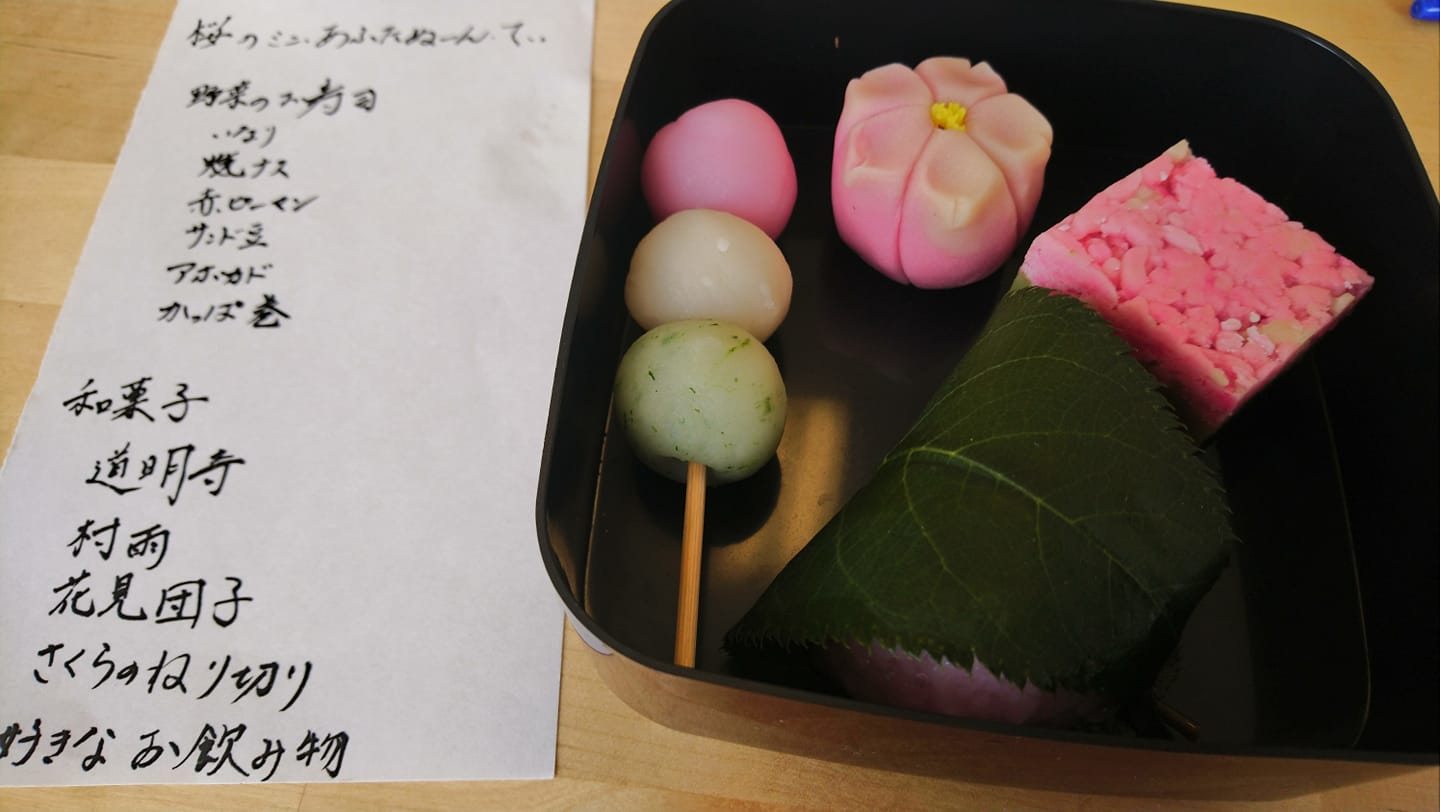 桜のミニ・あふたぬーん・てぃ
野菜のお寿司
いなり
焼ナス
赤ローマン
サンド豆
アボカド
かっぱ巻
和菓子
道明寺
村雨
花見団子
さくらのねり切り
好きなお飲み物